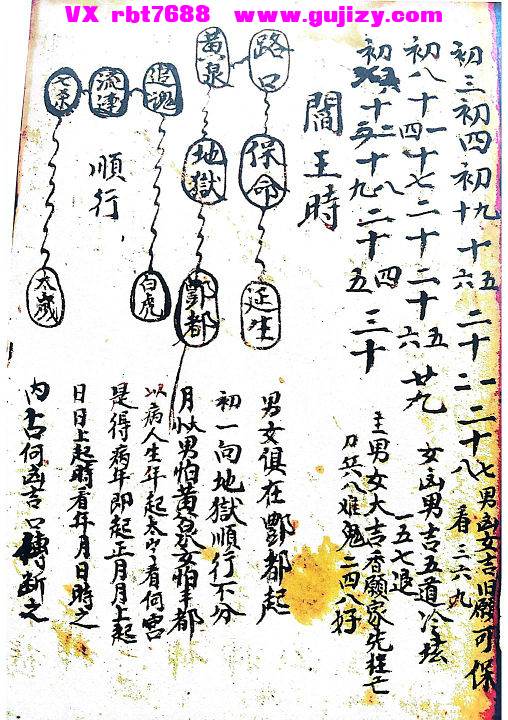 VX rbt7688 www.gujizy.com
初三初四初九十十五六二十一二十二二十七八
男凶女吉旧愿可保
看三六九
初八十一十四十七二十二十五六廿九
女凶男吉五道冷坛
一五七退
初十二十八十九二十四五三十
主男女大吉香願家先往亡
刀兵八难鬼二四八好
閻王時
路口
保命
延生
黄泉
地獄
酆都
追魂
白虎
流連
七杀
太歲
順行
男女俱在酆都起
初一向地獄順行不分
月大男怕黄泉女怕丰都
以病人生年起太岁看何宫
是得病年即起正月月上起
日日上起時看年月日時之
内占何凶吉口轉断之